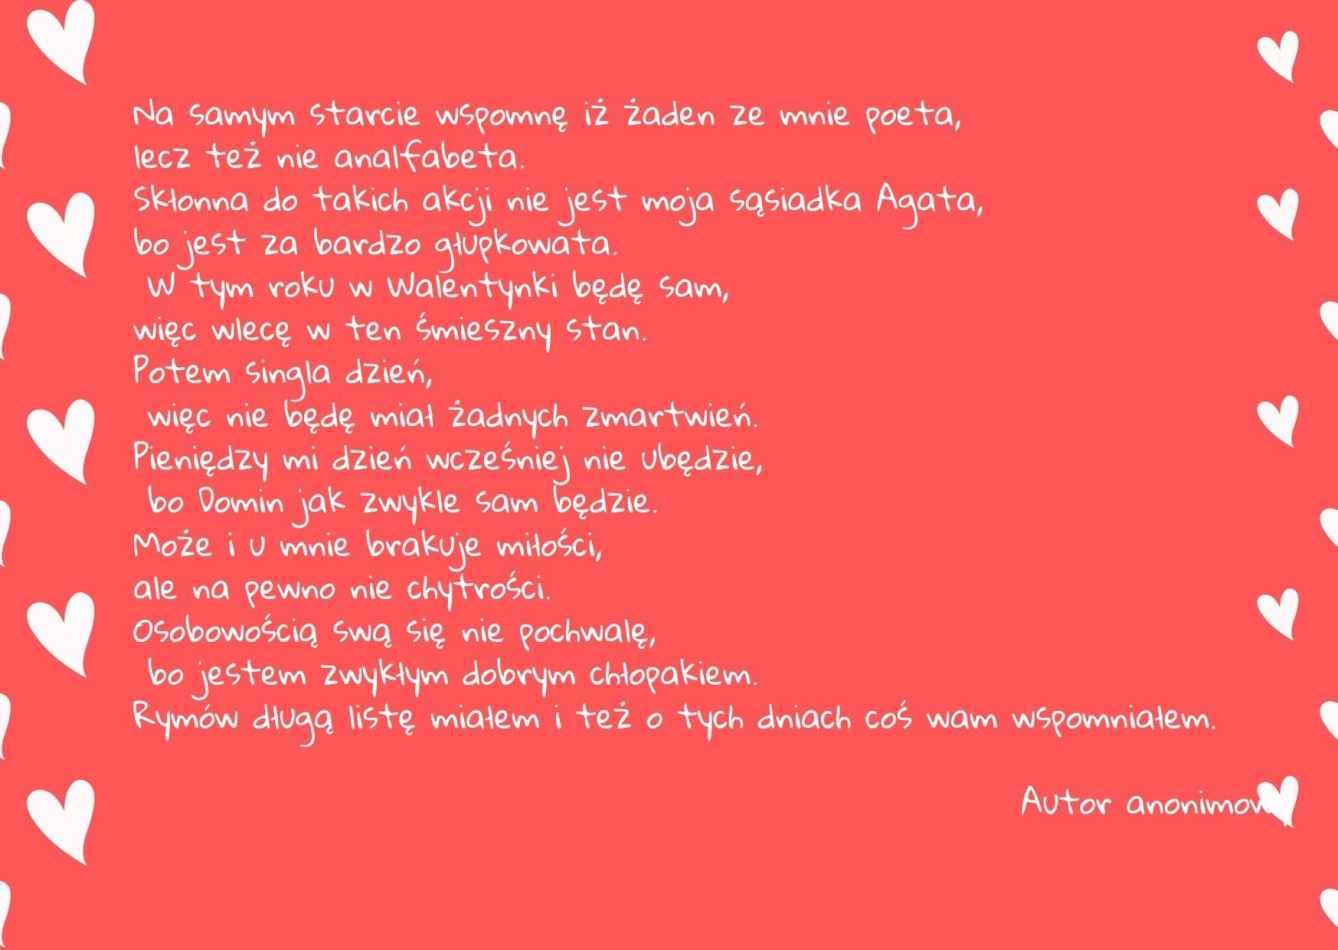 Na samym starcie wspomnę iż żaden ze mnie poeta,
lecz też nie analfabeta.
Skłonna do takich akcji nie jest moja sąsiadka Agata,
bo jest za bardzo głupkowata.
W tym roku w Walentynki będę sam,
więc wlecę w ten śmieszny stan.
Potem singla dzień,
więc nie będę miał żadnych zmartwień.
Pieniędzy mi dzień wcześniej nie ubędzie,
bo Domin jak zwykle sam będzie.
Może i u mnie brakuje miłości,
ale na pewno nie chytrości.
Osobowością swą się nie pochwalę,
bo jestem zwykłym dobrym chłopakiem.
Rymów długą listę miałem i też o tych dniach coś wam wspomniałem.
Autor anonimowy